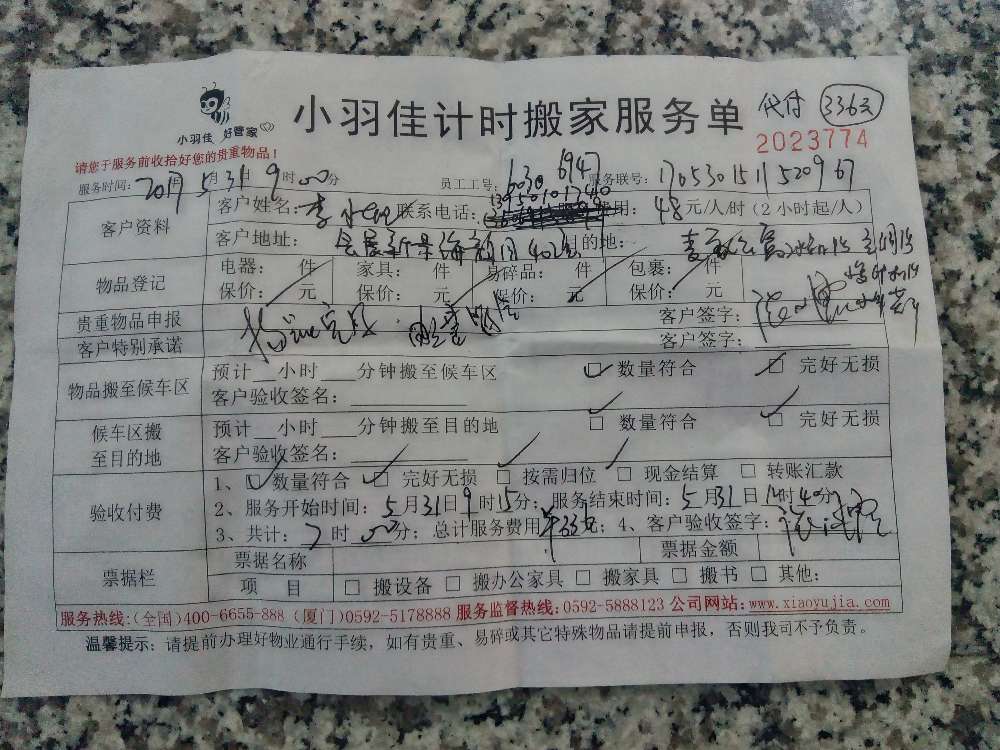 小羽佳 好管家
小羽佳计时搬家服务单 代付 336元
2023774
请您于服务前收拾好您的贵重物品！
服务时间: 2017年5月31日9时00分 员工工号: 1030 6947 服务联号: 170530151152096
客户资料 客户姓名: 李 联系电话: 13950101740 费用: 48元/人/时(2小时起/人)
客户地址: 目的地:
物品登记 电器: 件 家具: 件 易碎品: 件 包裹: 件
保价: 元 保价: 元 保价: 元 保价: 元
贵重物品申报 客户签字:
客户特别承诺 客户签字:
物品搬至候车区 预计__小时___分钟搬至候车区 数量符合 完好无损
客户验收签名:
候车区搬至目的地 预计__小时___分钟搬至目的地 数量符合 完好无损
客户验收签名:
验收付费 1、数量符合 完好无损 按需归位 现金结算 转账汇款
2、服务开始时间: 5月31日9时15分; 服务结束时间: 5月31日 时40分
3、共计: 7时00分; 总计服务费用 ; 4、客户验收签字:
票据栏 票据名称 票据金额
项 目 搬设备 搬办公家具 搬家具 搬书 其他:
服务热线:(全国)400-6655-888 (厦门)0592-5178888 服务监督热线:0592-5888123 公司网站: www.xiaoyujia.com
温馨提示: 请提前办理好物业通行手续，如有贵重、易碎或其它特殊物品请提前申报，否则我司不予负责。